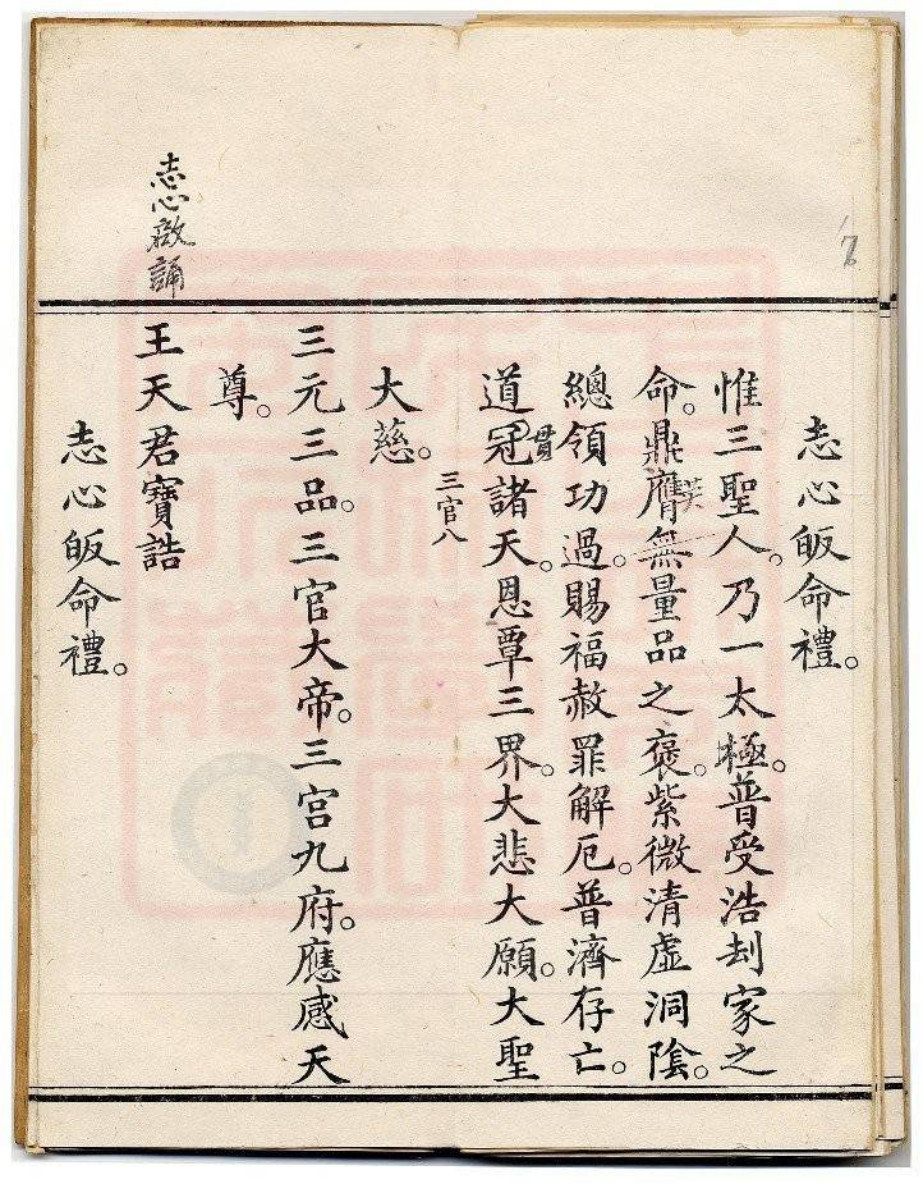 志心皈命禮。
惟三聖人。乃一太極。普受浩刦家之
命。鼎膺無量品之褒。紫微清虛洞陰。
總領功過。賜福赦罪解厄。普濟存亡。
道冠諸天。恩覃三界。大悲大願。大聖
貫
大慈。
三官八
三元三品。三官大帝。三宮九府。應感天
尊。
志心啟誦
王天君寶誥
志心皈命禮。